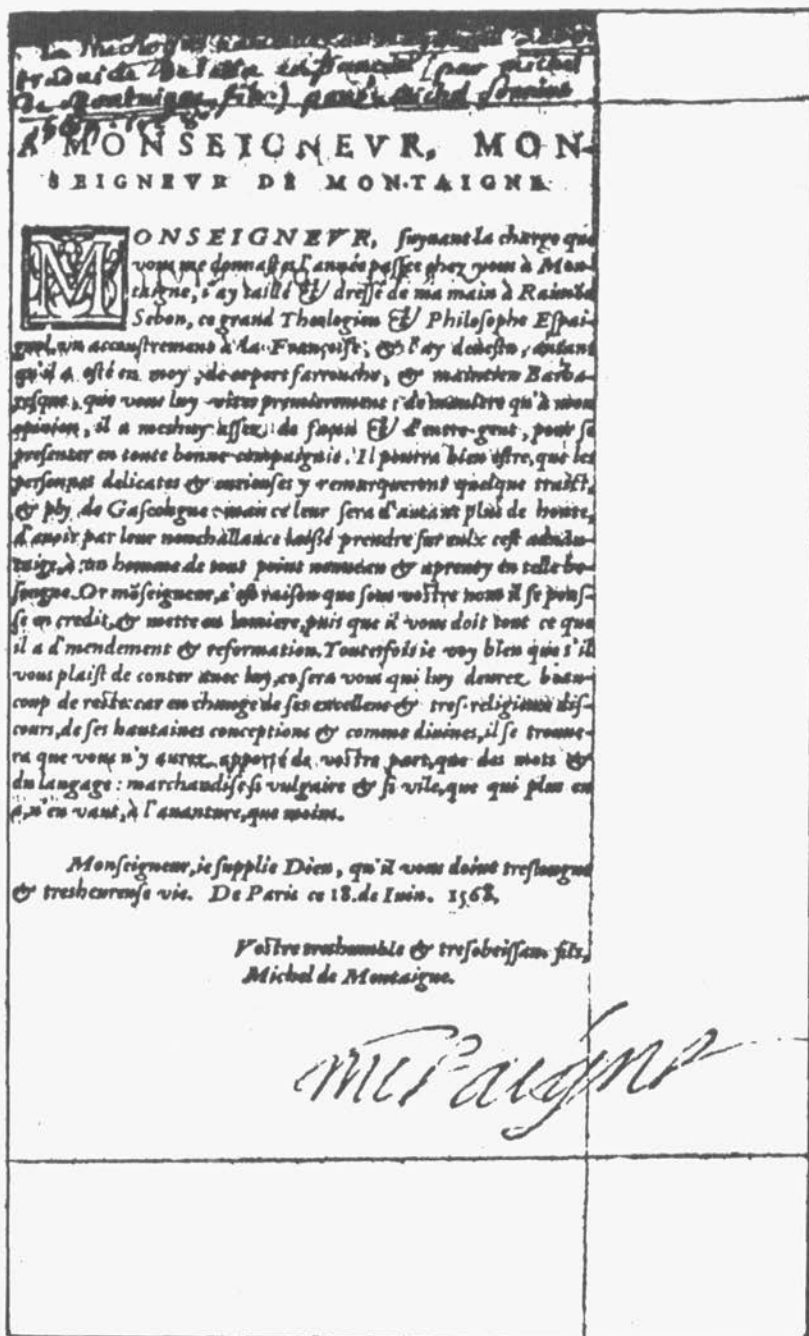 La Theologie
traduicte de latin en francois (par michel
de montaigne, fils) paris, michel sonnius
A MONSEIGNEVR, MON-
SEIGNEVR DE MONTAIGNE
MONSEIGNEVR, suyuant la charge que
vous me donnastes l'année passée chez vous à Mon-
taigne, i'ay taillé & dressé de ma main à Raimōd
Sebon, ce grand Theologien & Philosophe Espai-
gnol, vn accoustrement à la Françoise, & l'ay deuestu, autant
qu'il a esté en moy, de ce port farrouche, & maintien Barba-
resque, que vous luy vites premierement: de maniere qu'à mon
opinion, il a meshuy assez de façon & d'entre-gent, pour se
presenter en toute bonne compaignie. Il pourra bien estre, que les
personnes delicates & curieuses y remarqueront quelque traict,
& ply de Gascongne: mais ce leur sera d'autant plus de honte,
d'auoir par leur nonchallance laissé prendre sur eulx cest aduan-
taige, à vn homme de tout point nouueau & aprenty en telle be-
songne. Or mōseigneur, c'est raison que sous vostre nom il se pous-
se en credit, & mette en lumiere, puis que il vous doit tout ce que
il a d'mendement & reformation. Toutesfois ie voy bien que s'il
vous plaist de conter auec luy, ce sera vous qui luy deurez beau-
coup de reste: car en change de ses excellens & tres-religieux dis-
cours, de ses hautaines conceptions & comme diuines, il se trouue-
ra que vous n'y aurez apporté de vostre part, que des mots &
du langage: marchandise si vulgaire & si vile, que qui plus en
a, n'en vaut, à l'auanture, que moins.
Monseigneur, ie supplie Dieu, qu'il vous doint treslongue
& tresheureuse vie. De Paris ce 18. de Iuin. 1568.
Vostre treshumble & tresobeissant fils,
Michel de Montaigne.
Mōtaigne